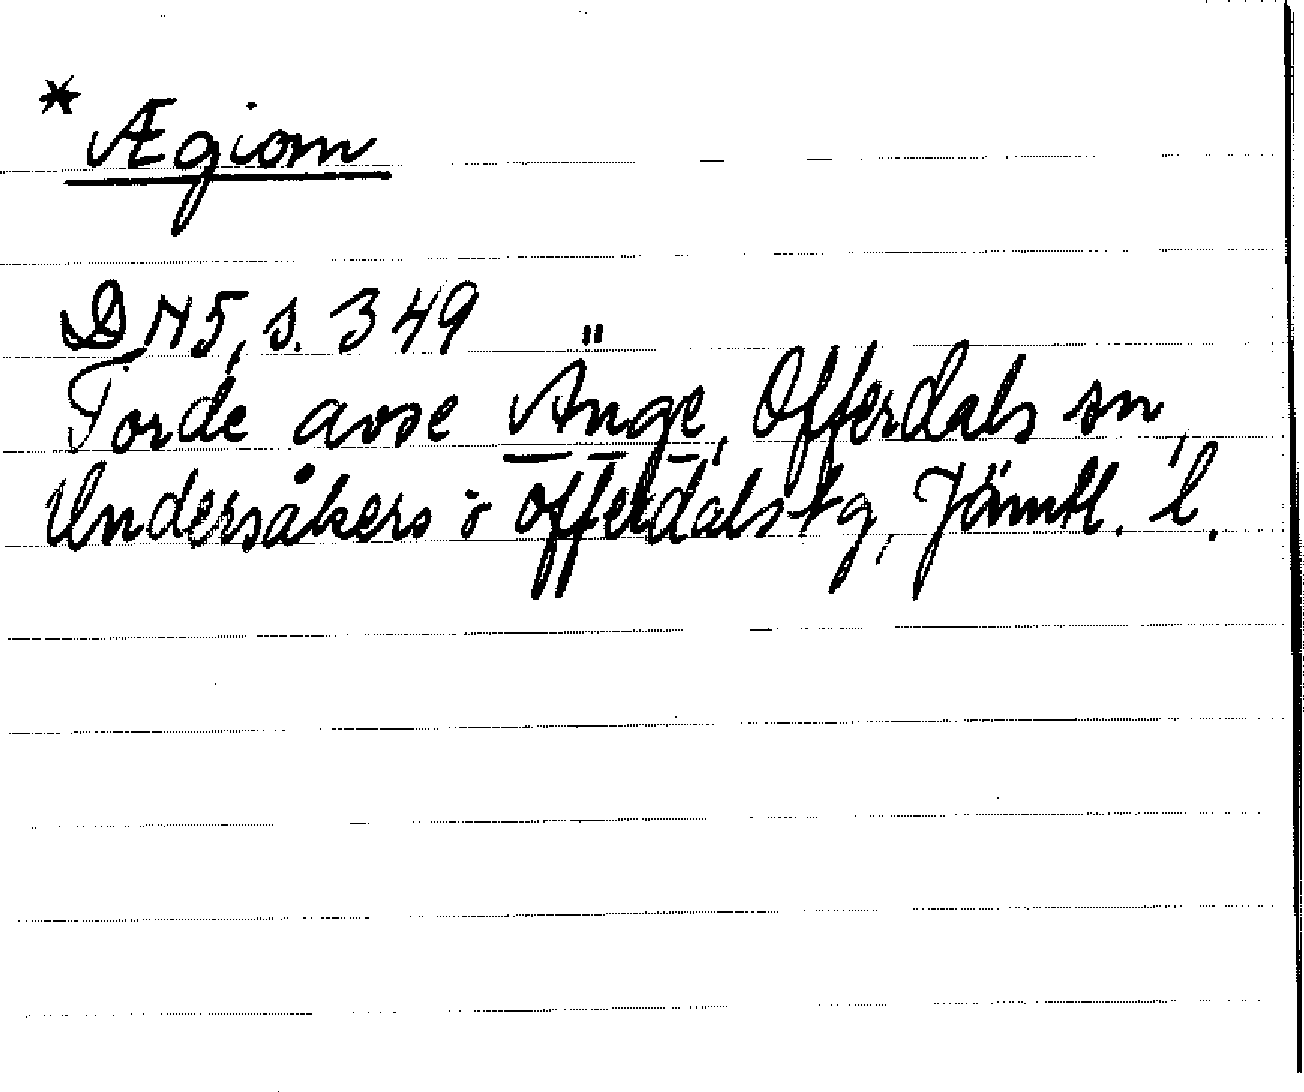 * Ægiom
DN5, s. 349
Torde avse Änge, Offerdals sn,
Undersåkers o offerdals tg, Jämtl. l.